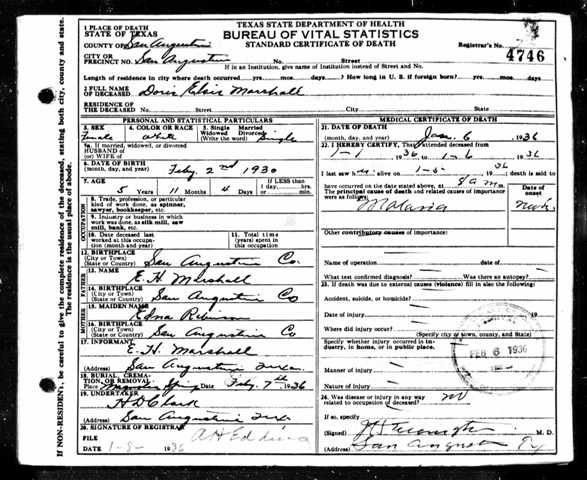 TEXAS STATE DEPARTMENT OF HEALTH
BUREAU OF VITAL STATISTICS
STANDARD CERTIFICATE OF DEATH
Registrar's No.
4746
1 PLACE OF DEATH
STATE OF TEXAS
COUNTY OF San Augustine
CITY OR
PRECINCT NO. San Augustine No. Street
If in an Institution, give name of Institution instead of Street and No.
Length of residence in city where death occurred yrs. mos. days. ? How long in U. S. if foreign born? yrs. mos. days.
2 FULL NAME
OF DECEASED Doris Elsie Marshall
RESIDENCE OF
THE DECEASED No. Street City State
PERSONAL AND STATISTICAL PARTICULARS
3. SEX 4. COLOR OR RACE 5. Single Married
Widowed Divorced
(Write the word)
Female White Single
5a. If married, widowed, or divorced
HUSBAND of
(or) WIFE of
6. DATE OF BIRTH
(month, day, and year) Feby. 2nd 1930
7. AGE If LESS than
5 Years 11 Months 4 Days 1 day, hrs.
or min.
OCCUPATION
8. Trade, profession, or particular
kind of work done, as spinner,
sawyer, bookkeeper, etc.
9. Industry or business in which
work was done, as silk mill, saw
mill, bank, etc.
10. Date deceased last
worked at this occupa-
tion (month and year)
11. Total time
(years) spent in
this occupation
12. BIRTHPLACE
(City or Town)
(State or Country) San Augustine Co.
FATHER
13. NAME
E. H. Marshall
14. BIRTHPLACE
(City or Town)
(State or Country) San Augustine Co
MOTHER
15. MAIDEN NAME
Edna
16. BIRTHPLACE
(City or Town)
(State or Country) San Augustine Co
17. INFORMANT
E. H. Marshall
(Address) San Augustine Texas
18. BURIAL, CREMA-
TION, OR REMOVAL
Place Magnolia Spring Date Feby. 7th 1936
19. UNDERTAKER
H D Clark
(Address) San Augustine
20. SIGNATURE OF REGISTRAR
FILE
DATE 1-8- 1936
MEDICAL CERTIFICATE OF DEATH
21. DATE OF DEATH
(month, day, and year) Jan. 6 1936
22. I HEREBY CERTIFY, That I attended deceased from
1-1 1936 to 1-6 1936
I last saw alive on 1-5- 36 death is said to
have occurred on the date stated above, at 8 a m.
The principal cause of death and related causes of importance
were as follows:
Date of
onset
Malaria
Other contributory causes of importance:
Name of operation date of
What test confirmed diagnosis? Was there an autopsy?
23. If death was due to external causes (violence) fill in also the following:
Accident, suicide, or homicide?
Date of injury 19
Where did injury occur?
(Specify city or town, county, and State)
Specify whether injury occurred in in-
dustry, in home, or in public place.
Manner of injury
Nature of injury
FEB 6 1936
24. Was disease or injury in any way
related to occupation of deceased? no
If so, specify
(Signed) M. D.
(Address) San Augustine
If NON-RESIDENT, be careful to give the complete residence of the deceased, stating both city, county and state.
The residence is the usual place of abode.